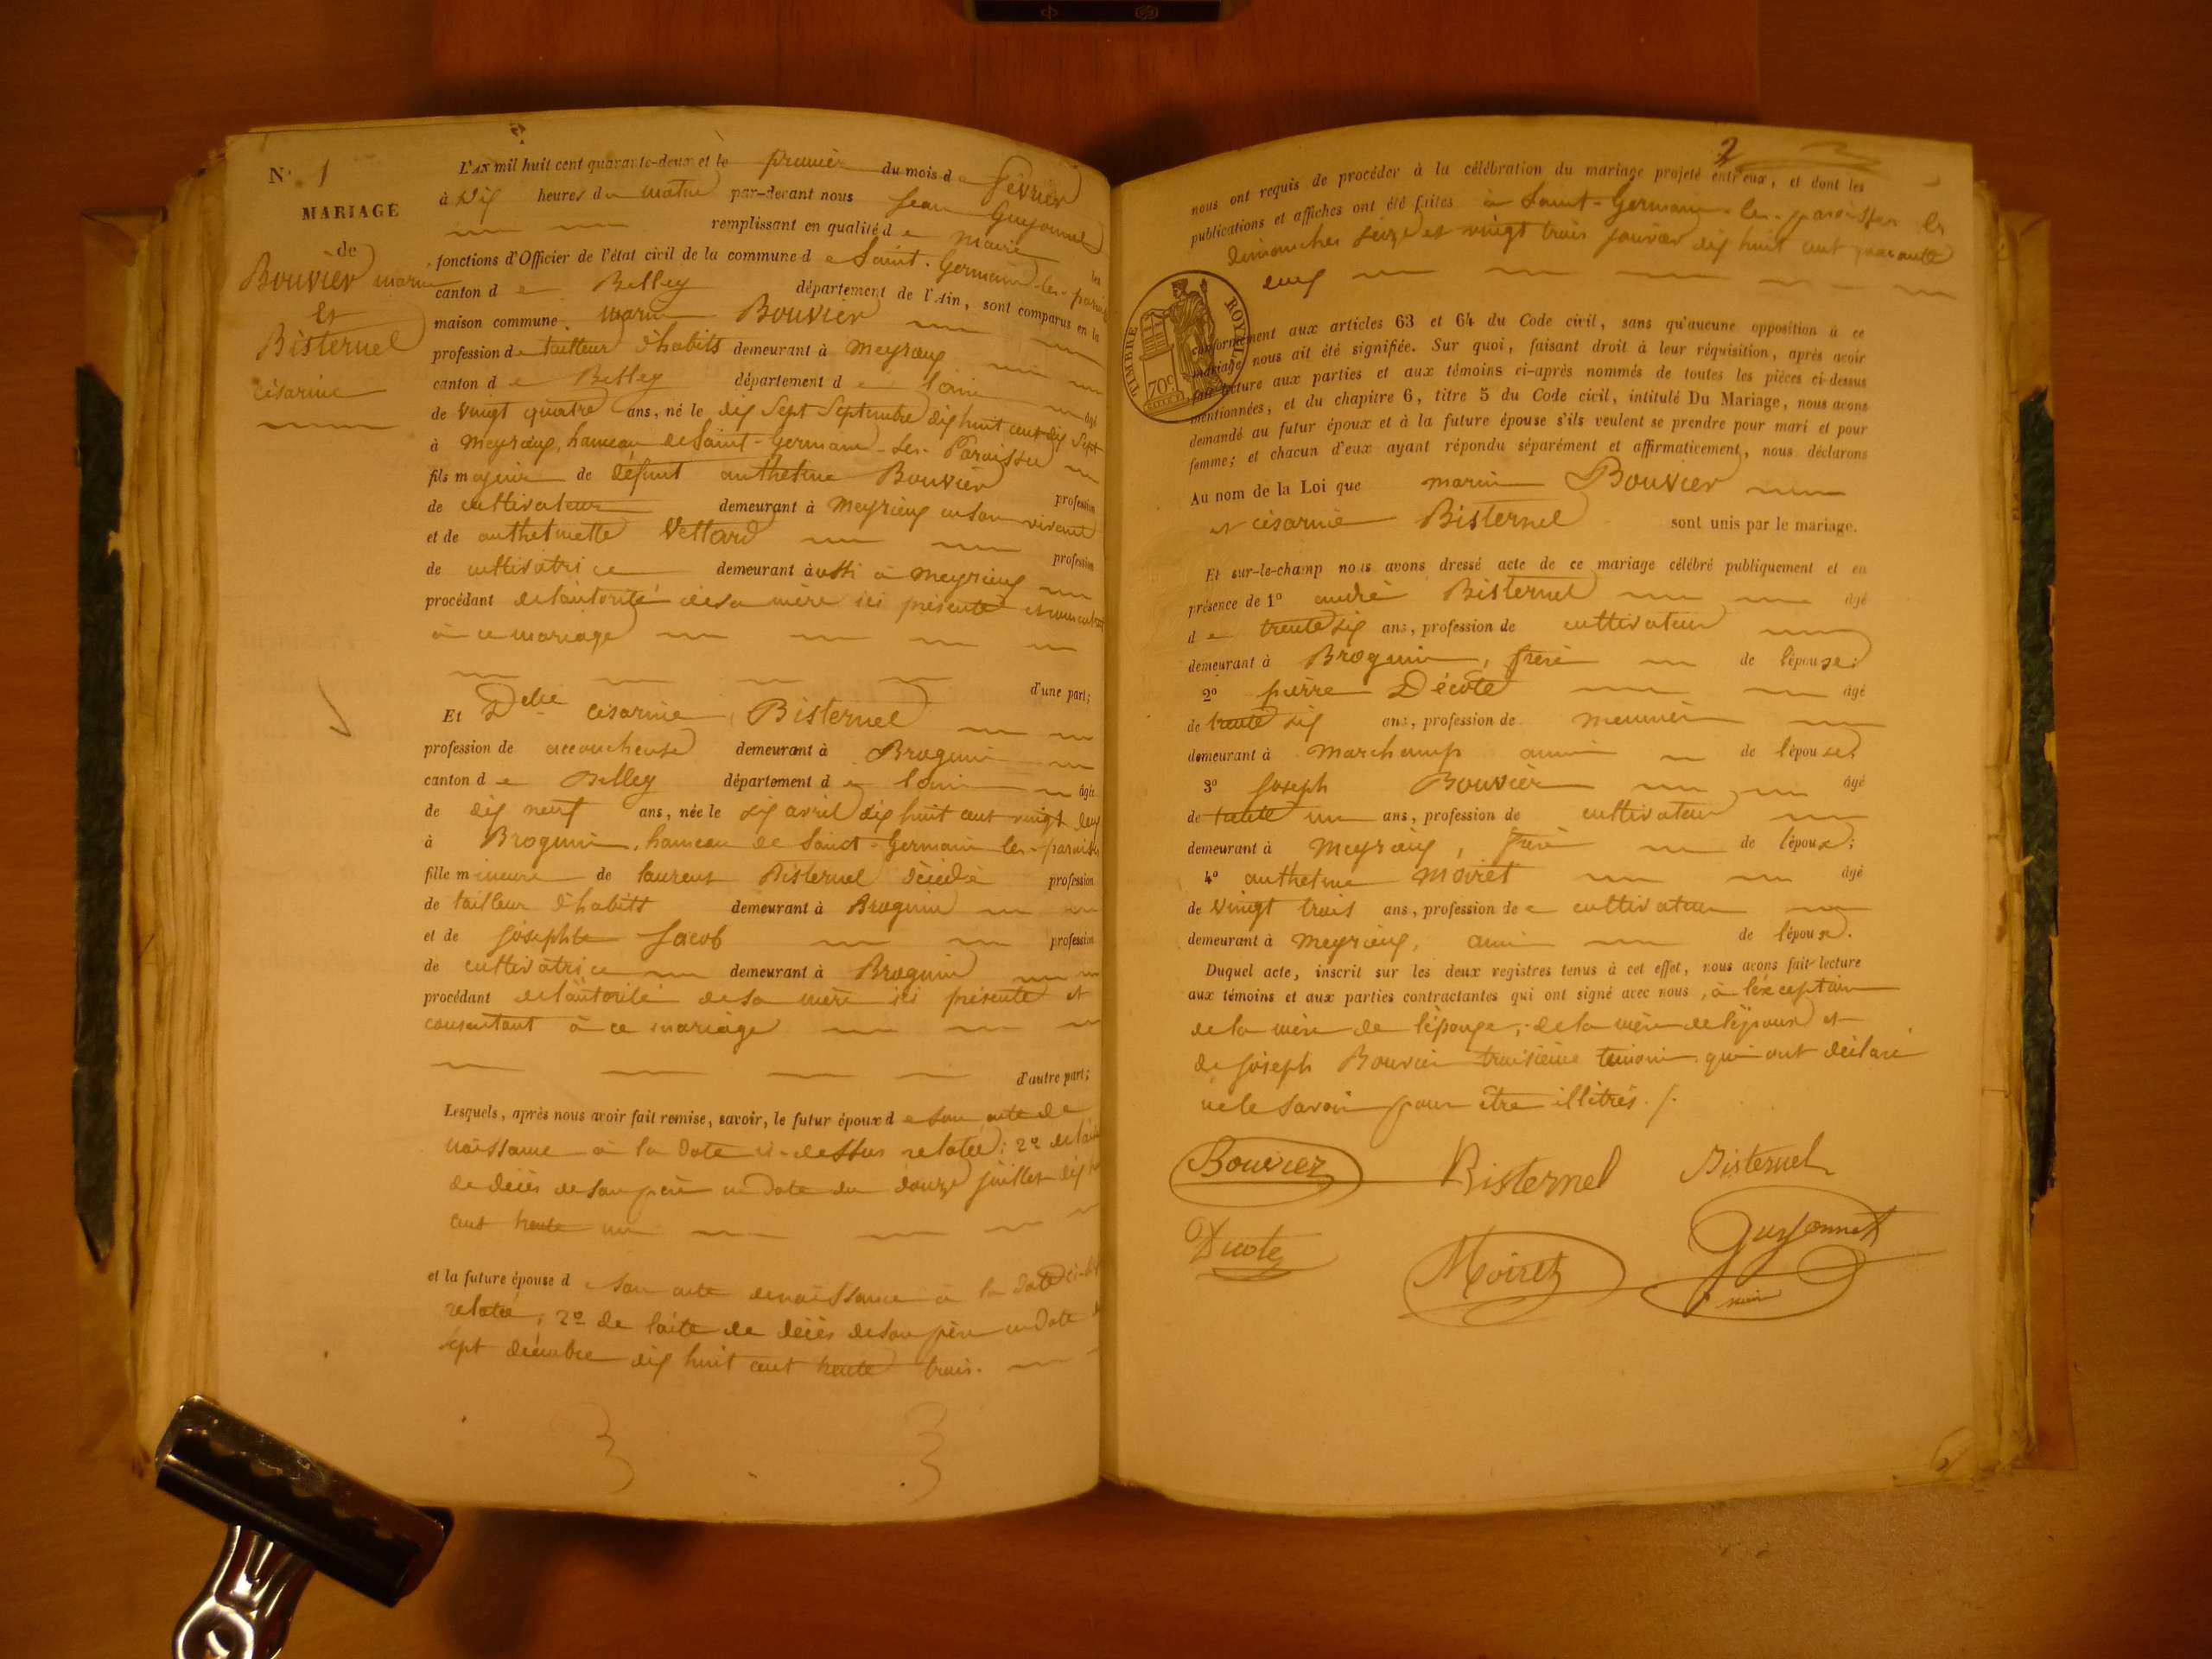 N° 1
MARIAGE
de
Bouvier marin
et
Bisternel
césarine
L'AN mil huit cent quarante-deux et le premier du mois de février
à dix heures du matin par-devant nous Jean Guyonnet
remplissant en qualité de maire les
fonctions d'Officier de l'état civil de la commune de Saint-Germain-les-paroisses
canton de Belley département de l'Ain, sont comparus en la
maison commune, marin Bouvier
profession de tailleur d'habits demeurant à meyrieux
canton de Belley département de l'ain âgé
de vingt quatre ans, né le dix sept septembre dix huit cent dix sept
à meyrieux, hameau de Saint-Germain-les-Paroisses
fils majeur de défunt anthelme Bouvier profession
de cultivateur demeurant à meyrieux en son vivant
et de anthelmette Vettard profession
de cultivatrice demeurant aussi à meyrieux
procédant de l'autorité de sa mère ici présente et consentant
à ce mariage
d'une part;
Et Delle césarine Bisternel
profession de accoucheuse demeurant à Brognin
canton de Belley département de l'ain âgée
de dix neuf ans, née le dix avril dix huit cent vingt deux
à Brognin, hameau de Saint-Germain-les-paroisses
fille mineure de laurent Bisternel décédé profession
de tailleur d'habits demeurant à Brognin
et de josephte Jacob profession
de cultivatrice demeurant à Brognin
procédant de l'autorité de sa mère ici présente et
consentant à ce mariage
d'autre part;
Lesquels, après nous avoir fait remise, savoir, le futur époux de son acte de
naissance à la date ci-dessus relatée; 2° de l'acte
de décès de son père en date du douze juillet dix huit
cent trente un
et la future épouse de son acte de naissance à la date ci-dessus
relatée; 2° de l'acte de décès de son père en date du
sept décembre dix huit cent trente trois.
3 3
2
nous ont requis de procéder à la célébration du mariage projeté entr'eux, et dont les
publications et affiches ont été faites à Saint-Germain-les-paroisses les
dimanches seize et vingt trois janvier dix huit cent quarante
deux
TIMBRE ROYAL
70c
conformément aux articles 63 et 64 du Code civil, sans qu'aucune opposition à ce
mariage nous ait été signifiée. Sur quoi, faisant droit à leur réquisition, après avoir
fait lecture aux parties et aux témoins ci-après nommés de toutes les pièces ci-dessus
mentionnées, et du chapitre 6, titre 5 du Code civil, intitulé Du Mariage, nous avons
demandé au futur époux et à la future épouse s'ils veulent se prendre pour mari et pour
femme; et chacun d'eux ayant répondu séparément et affirmativement, nous déclarons
Au nom de la Loi que marin Bouvier
et césarine Bisternel sont unis par le mariage.
Et sur-le-champ nous avons dressé acte de ce mariage célébré publiquement et en
présence de 1° andré Bisternel âgé
de trente six ans, profession de cultivateur
demeurant à Brognin, frère de l'épouse;
2° pierre Décote âgé
de trente six ans, profession de meunier
demeurant à marchamp ami de l'épouse;
3° Joseph Bouvier âgé
de trente un ans, profession de cultivateur
demeurant à meyrieux, frère de l'époux;
4° anthelme Moiret âgé
de vingt trois ans, profession de cultivateur
demeurant à meyrieux, ami de l'époux.
Duquel acte, inscrit sur les deux registres tenus à cet effet, nous avons fait lecture
aux témoins et aux parties contractantes qui ont signé avec nous, à l'exception
de la mère de l'épouse, de la mère de l'époux et
de joseph Bouvier troisième témoin qui ont déclaré
ne le savoir pour être illétrés.
Bouvier Bisternel Bisternel
Décote Moiret Guyonnet
maire